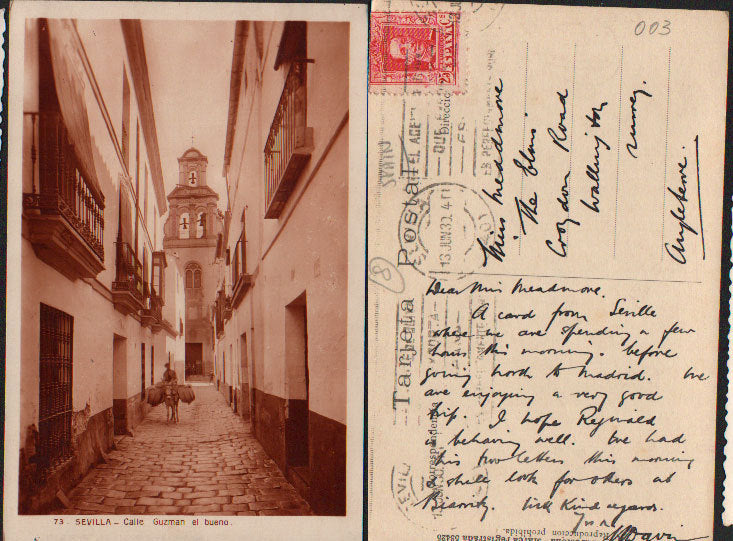 73 . SEVILLA - Calle Guzman el bueno.
003
ESPAÑA
Dirección
Miss Meadmore
The Elms
Croydon Road
Wallington
Surrey.
Angleterre.
13 JUN 30
8
Tarjeta Postal
Correspondencia
Dear Miss Meadmore.
A card from Seville
where we are spending a few
hours this morning. before
going north to Madrid. We
are enjoying a very good
trip. I hope Reginald
is behaving well. We had
his two letters this morning
shall look for others at
Biarritz. With Kind regards.
Reproduccion prohibida.
Marca registrada 58426